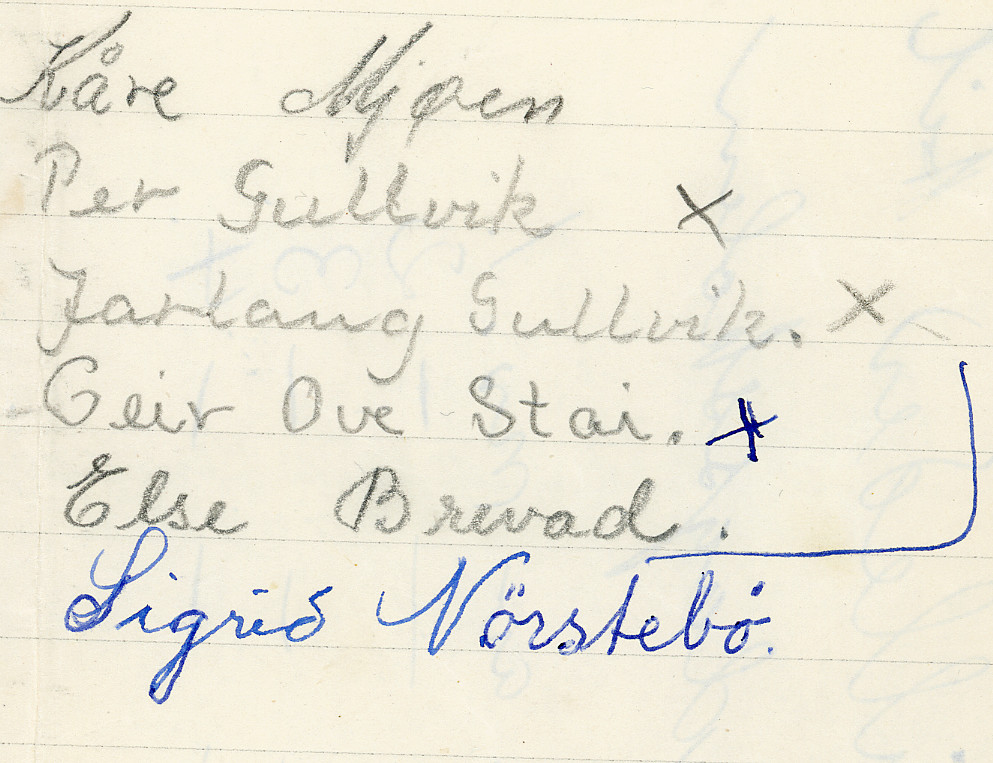 Kåre Mjøen
Per Gullvik X
Jarlaug Gullvik. X
Geir Ove Stai. X
Else Brevad.
Sigrid Nörstebö.